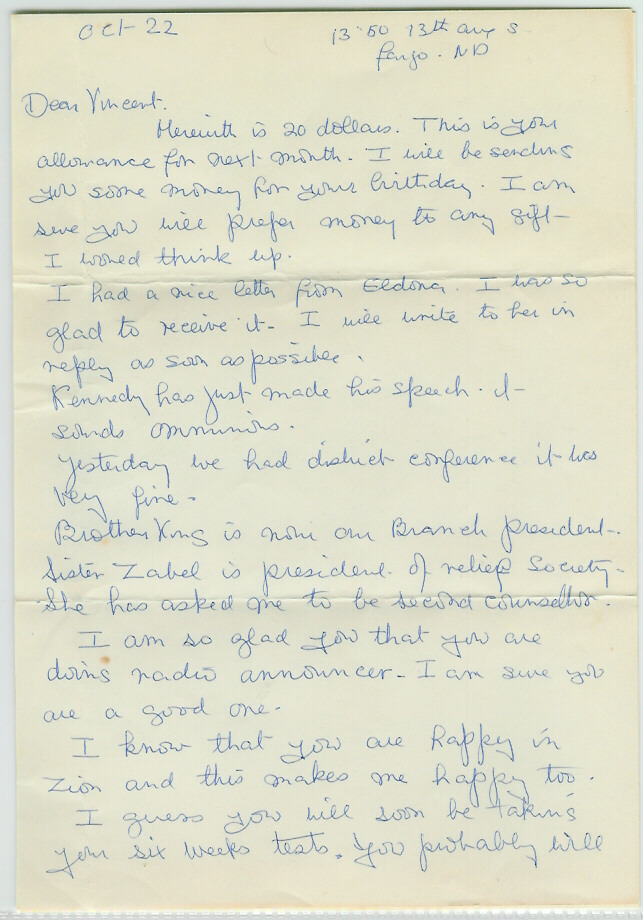 Oct 22
13 50 13th ave S
Fargo. ND
Dear Vincent.
Herewith is 20 dollars. This is your
allowance for next month. I will be sending
you some money for your birthday. I am
sure you will prefer money to any gift
I would think up.
I had a nice letter from Eldona. I was so
glad to receive it. I will write to her in
reply as soon as possible.
Kennedy has just made his speech. it
sounds omminios.
Yesterday we had district conference it was
very fine.
Brother King is now our Branch president.
Sister Zabel is president of relief Society.
She has asked me to be second counsellor.
I am so glad you that you are
doing radio announcer. I am sure you
are a good one.
I know that you are happy in
Zion and this makes me happy too.
I guess you will soon be taking
your six weeks tests. You probably will